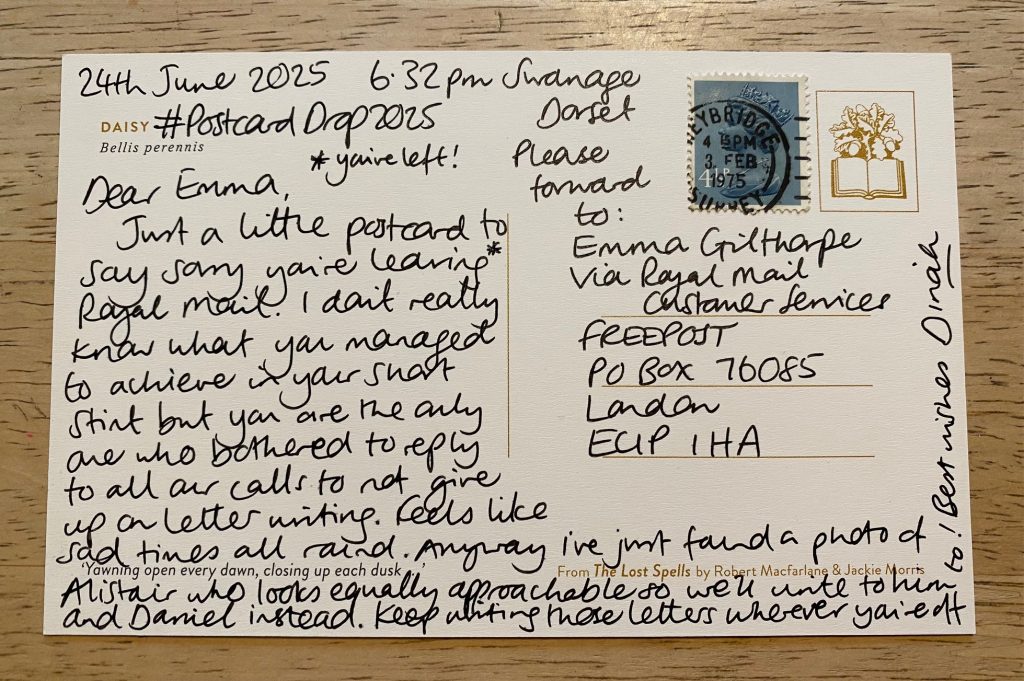 24th June 2025 6.32pm Swanage
Dorset
DAISY #PostcardDrop2025
Bellis perennis
*you're left!
Please
forward
to:
Emma Gilthorpe
Via Royal Mail
Customer Services
FREEPOST
PO Box 76085
London
EC1P 1HA
WEYBRIDGE
4 15PM
3. FEB
1975
SURREY
4½P
Dear Emma,
Just a little postcard to
say sorry you're leaving*
Royal Mail. I don't really
know what you managed
to achieve in your short
stint but you are the only
one who bothered to reply
to all our calls to not give
up on letter writing. Feels like
sad times all round. Anyway I've just found a photo of
'Yawning open every dawn, closing up each dusk . . .'
From The Lost Spells by Robert Macfarlane & Jackie Morris
Alistair who looks equally approachable so we'll write to him
and Daniel instead. Keep writing those letters wherever you're off
to! Best wishes Dinah